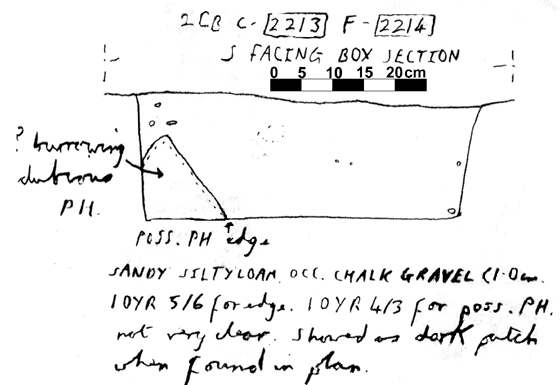 2CB C-[2213] F-[2214]
S FACING BOX SECTION
0 5 10 15 20cm
? burrowing
dubious
PH.
POSS. PH edge
SANDY SILTY LOAM. OCC. CHALK GRAVEL <1.0cm.
10YR 5/6 for edge. 10YR 4/3 for poss. PH.
not very clear. Showed as dark patch
when found in plan.